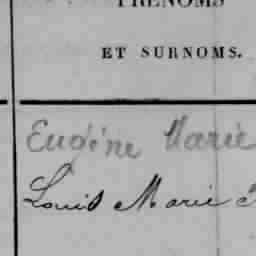 PRÉNOMS
ET SURNOMS.
Eugène Marie
Louis Marie